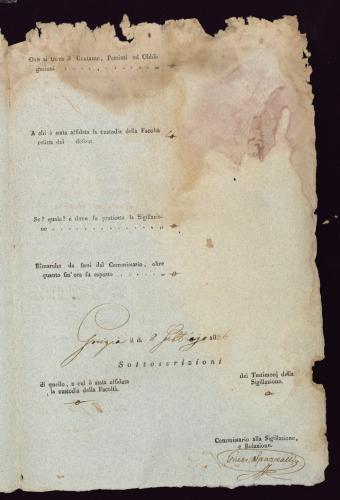 Ove si trova il Contante, Preziosi ed Obbli-
gazioni . . . . . . . . . . . . o
A chi è stata affidata la custodia della Facoltà
relitta dal defont
Se? quale? e dove fu praticata la Sigillazio-
ne . . . . . . . . . . . . o
Rimarche da farsi dal Commissario, oltre
quanto fin' ora fu esposto . . . . . . o
li di 18
Sottoscrizioni
di quello, a cui è stata affidata
la custodia della Facoltà.
o
dei Testimonj della
Sigillazione.
o
Commissario alla Sigillazione,
e Relazione.